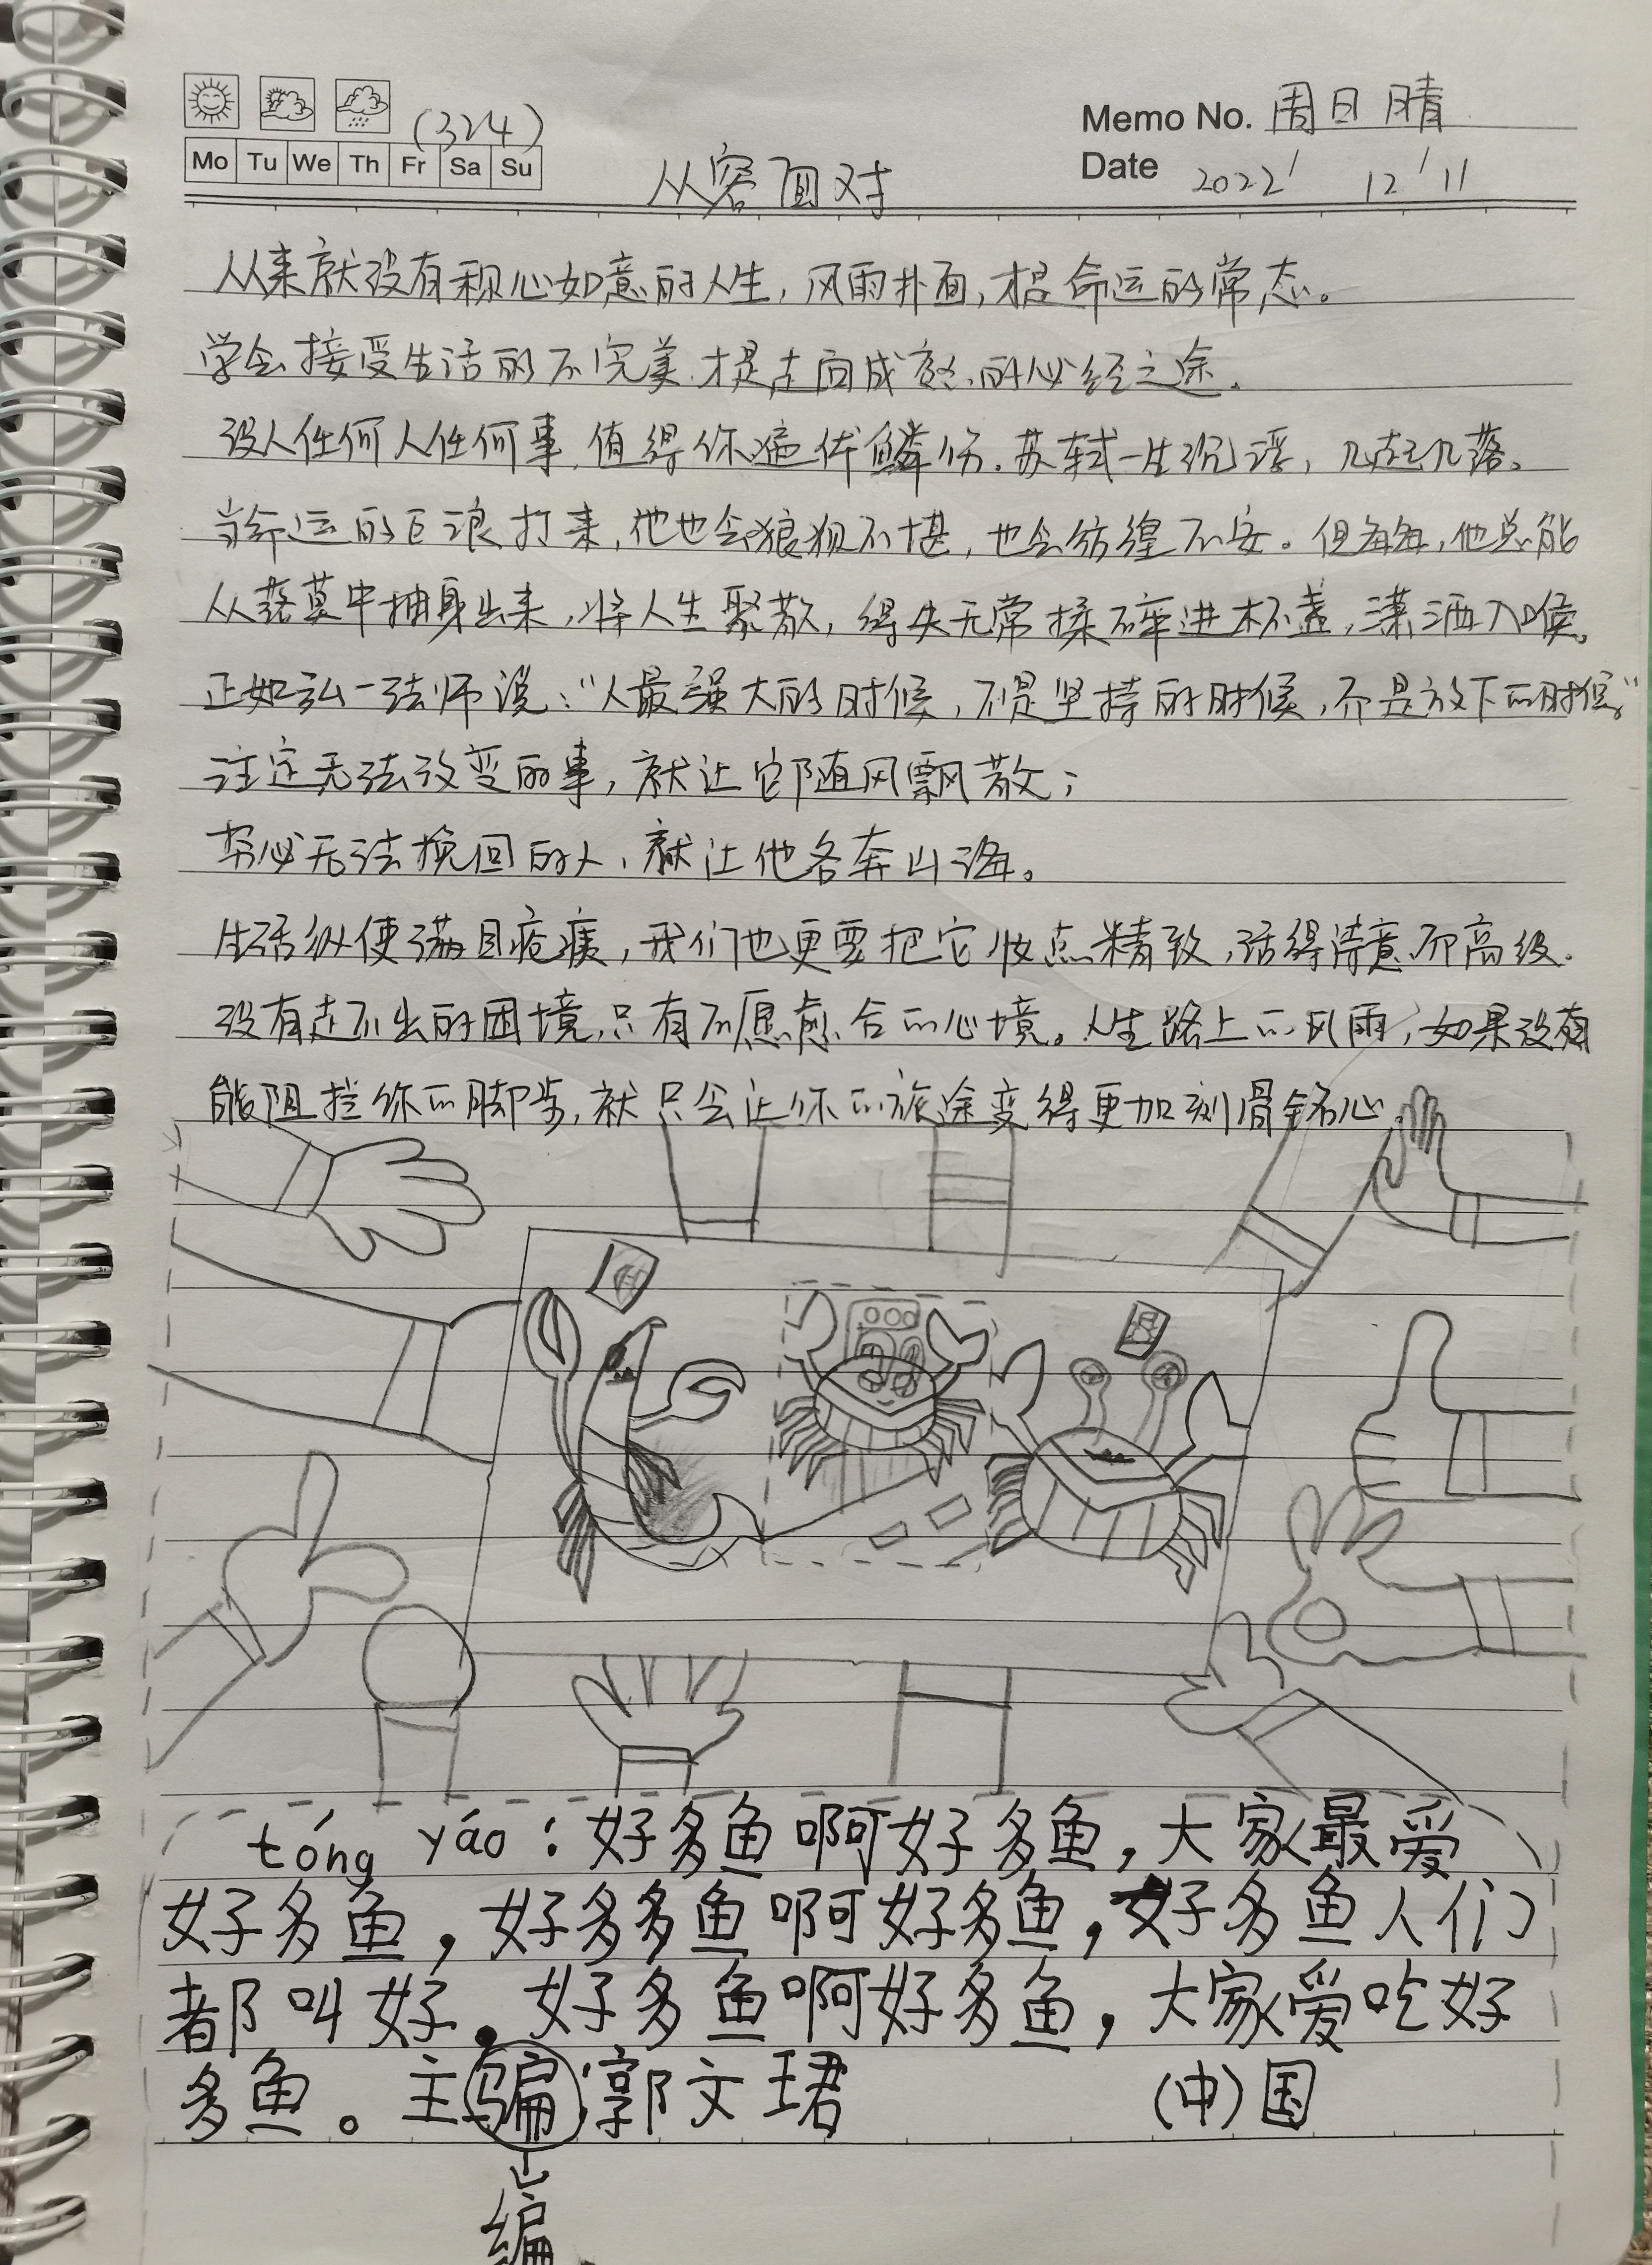 (324)
Memo No. 周日 晴
Mo Tu We Th Fr Sa Su
Date 2022' 12'11
从容面对
从来就没有称心如意的人生,风雨扑面,才是命运的常态。
学会接受生活的不完美.才是走向成熟的必经之途.
没人任何人任何事.值得你遍体鳞伤.苏轼一生沉浮,几起几落。
当命运的巨浪打来,他也会狼狈不堪,也会彷徨不安。但每每,他总能
从落莫中抽身出来,将人生聚散,得失无常揉碎进杯盏,潇洒入喉。
正如弘一法师说:“人最强大的时候,不是坚持的时候,而是放下的时候。”
注定无法改变的事,就让它随风飘散;
势必无法挽回的人,就让他各奔山海。
生活纵使满目疮痍,我们也更要把它收点精致,活得诗意而高级.
没有走不出的困境,只有不愿愈合的心境。人生路上的风雨,如果没有
能阻拦你的脚步,就只会让你的旅途变得更加刻骨铭心
tóng yáo:好多鱼啊好多鱼,大家最爱
好多鱼,好多多鱼啊好多鱼,好多鱼人们
都叫好.好多鱼啊好多鱼,大家爱吃好
多鱼。主骗:郭文珺 (中)国
编